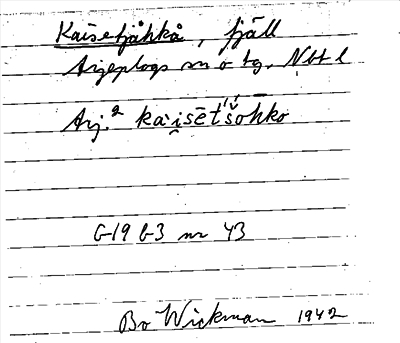 Kaisetjåhkå, fjäll
Arjeplogs sn o tg. Nbt l
Arj.² ka·i̯sēt'šohko
G19 b3 nr 43
Bo Wickman 1942